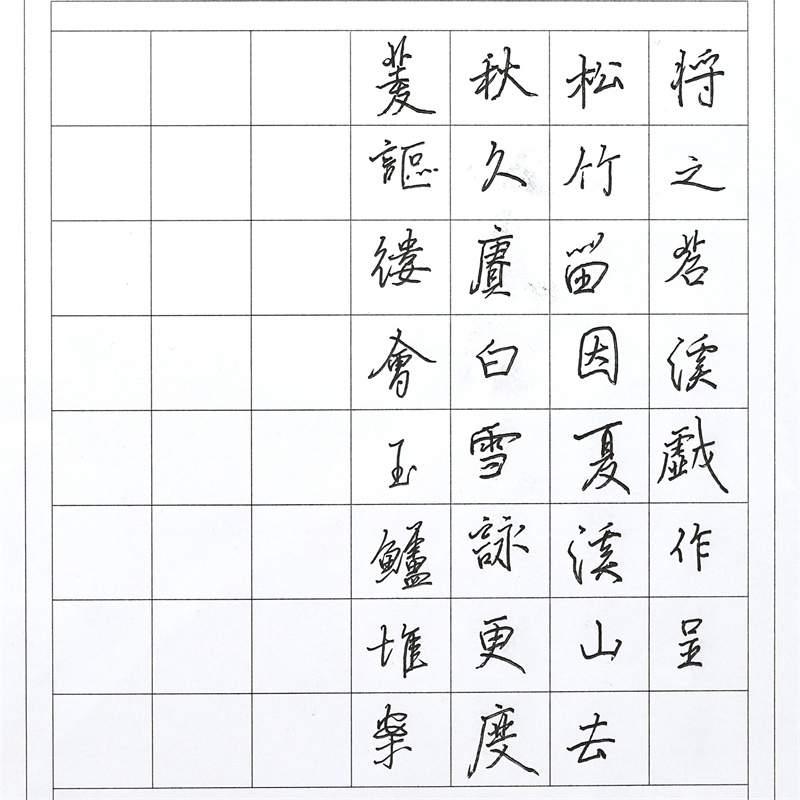 将之苕溪戯作呈
松竹留因夏溪山去
秋久賡白雪詠更度
菱謳縷會玉鱸堆案